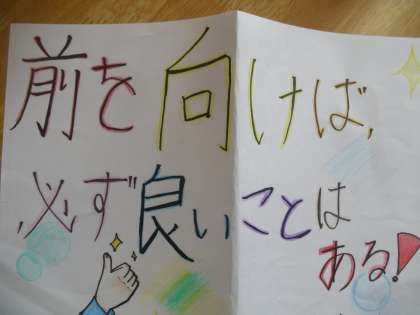 前を向けば、
必ず良いことは
ある!